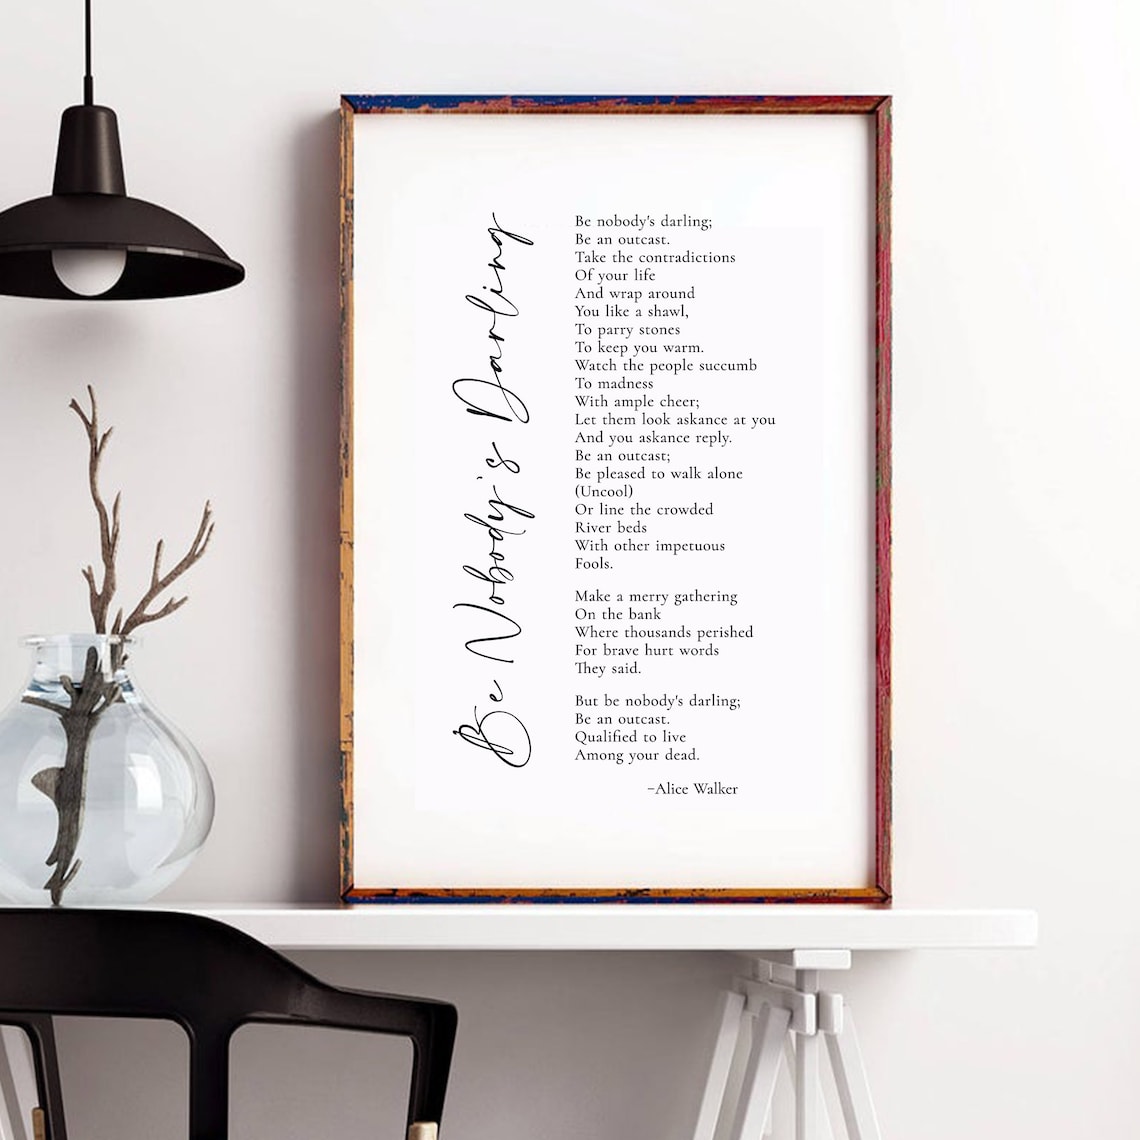 Be Nobody's Darling
Be nobody's darling;
Be an outcast.
Take the contradictions
Of your life
And wrap around
You like a shawl,
To parry stones
To keep you warm.
Watch the people succumb
To madness
With ample cheer;
Let them look askance at you
And you askance reply.
Be an outcast;
Be pleased to walk alone
(Uncool)
Or line the crowded
River beds
With other impetuous
Fools.
Make a merry gathering
On the bank
Where thousands perished
For brave hurt words
They said.
But be nobody's darling;
Be an outcast.
Qualified to live
Among your dead.
–Alice Walker